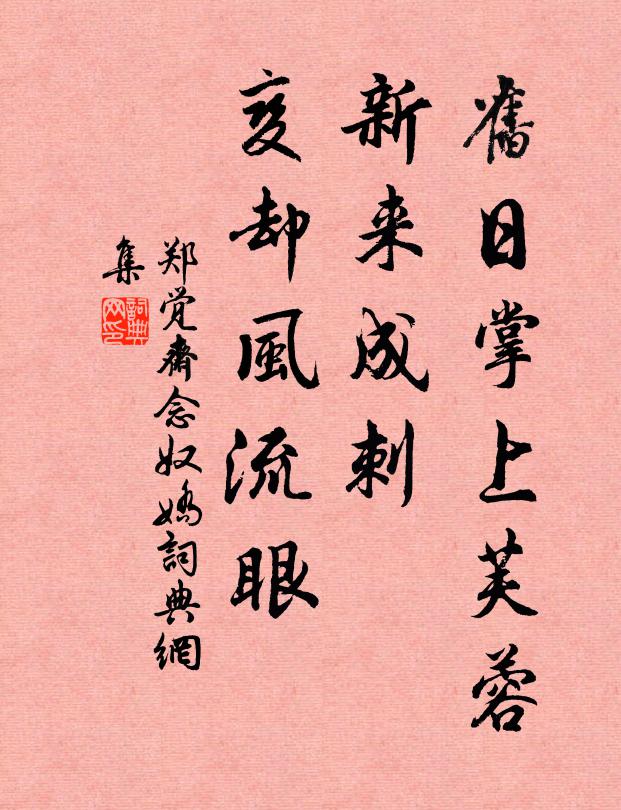 舊日掌上芙蓉
新来成刺
变却風流眼
郑觉齋念奴嬌詞典網
集
詞典網印